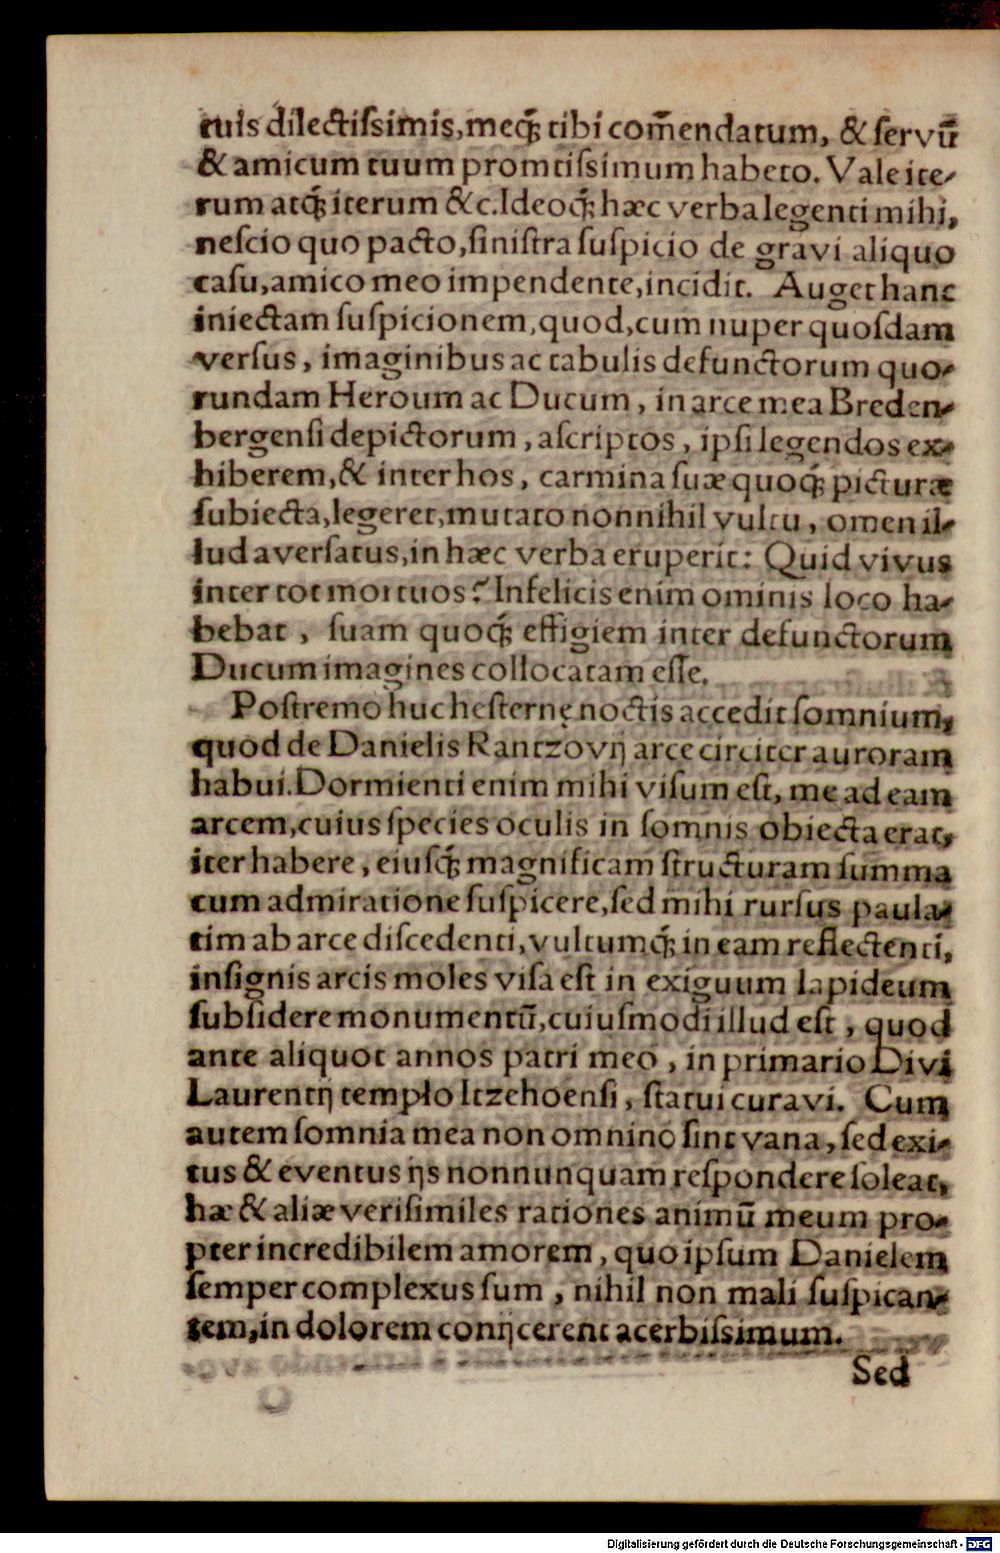 tuis dilectiſsimis, meq́; tibi com̃endatum, & ſervũ
& amicum tuum promtiſsimum habeto. Vale ite-
rum atq́; iterum &c. Ideoq́; hæc verba legenti mihi,
neſcio quo pacto, ſiniſtra ſuſpicio de gravi aliquo
caſu, amico meo impendente, incidit. Auget hanc
iniectam ſuſpicionem, quod, cum nuper quoſdam
verſus, imaginibus ac tabulis defunctorum quo-
rundam Heroum ac Ducum, in arce mea Breden-
bergenſi depictorum, aſcriptos, ipſi legendos ex-
hiberem, & inter hos, carmina ſuæ quoq́; picturæ
ſubiecta, legeret, mutato nonnihil vultu, omen il-
lud averſatus, in hæc verba eruperit: Quid vivus
inter tot mortuos? Infelicis enim ominis loco ha-
bebat, ſuam quoq́; effigiem inter defunctorum
Ducum imagines collocatam eſſe.
Poſtremo huc heſternę noctis accedit ſomnium,
quod de Danielis Rantzovij arce circiter auroram
habui. Dormienti enim mihi viſum eſt, me ad eam
arcem, cuius ſpecies oculis in ſomnis obiecta erat,
iter habere, eiuſq́; magnificam ſtructuram ſumma
cum admiratione ſuſpicere, ſed mihi rurſus paula-
tim ab arce diſcedenti, vultumq́; in eam reflectenti,
inſignis arcis moles viſa eſt in exiguum lapideum
ſubſidere monumentũ, cuiuſmodi illud eſt, quod
ante aliquot annos patri meo, in primario Divi
Laurentij templo Itzehoenſi, ſtatui curavi. Cum
autem ſomnia mea non omnino ſint vana, ſed exi-
tus & eventus ijs nonnunquam reſpondere ſoleat,
hæ & aliæ veriſimiles rationes animũ meum pro-
pter incredibilem amorem, quo ipſum Danielem
ſemper complexus ſum, nihil non mali ſuſpican-
tem, in dolorem conijcerent acerbiſsimum.
Sed
Digitalisierung gefördert durch die Deutsche Forschungsgemeinschaft - DFG